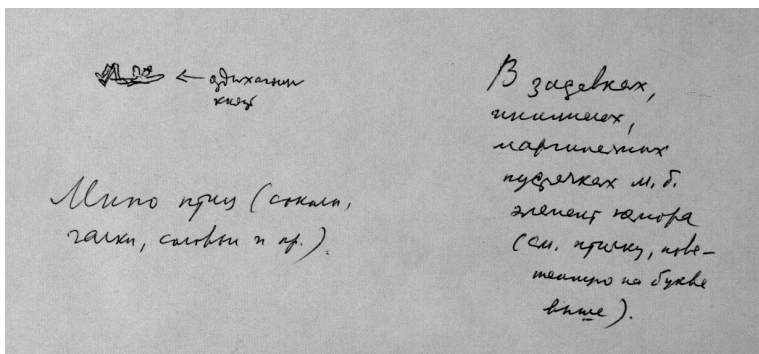 ← отдыхающий
князь
Мимо птиц (соколы,
галки, соловьи и пр.).
В заставках,
инициалах,
маргинальных
пустячках м. б.
элемент юмора
(см. птичку, пове-
на букве
выше).